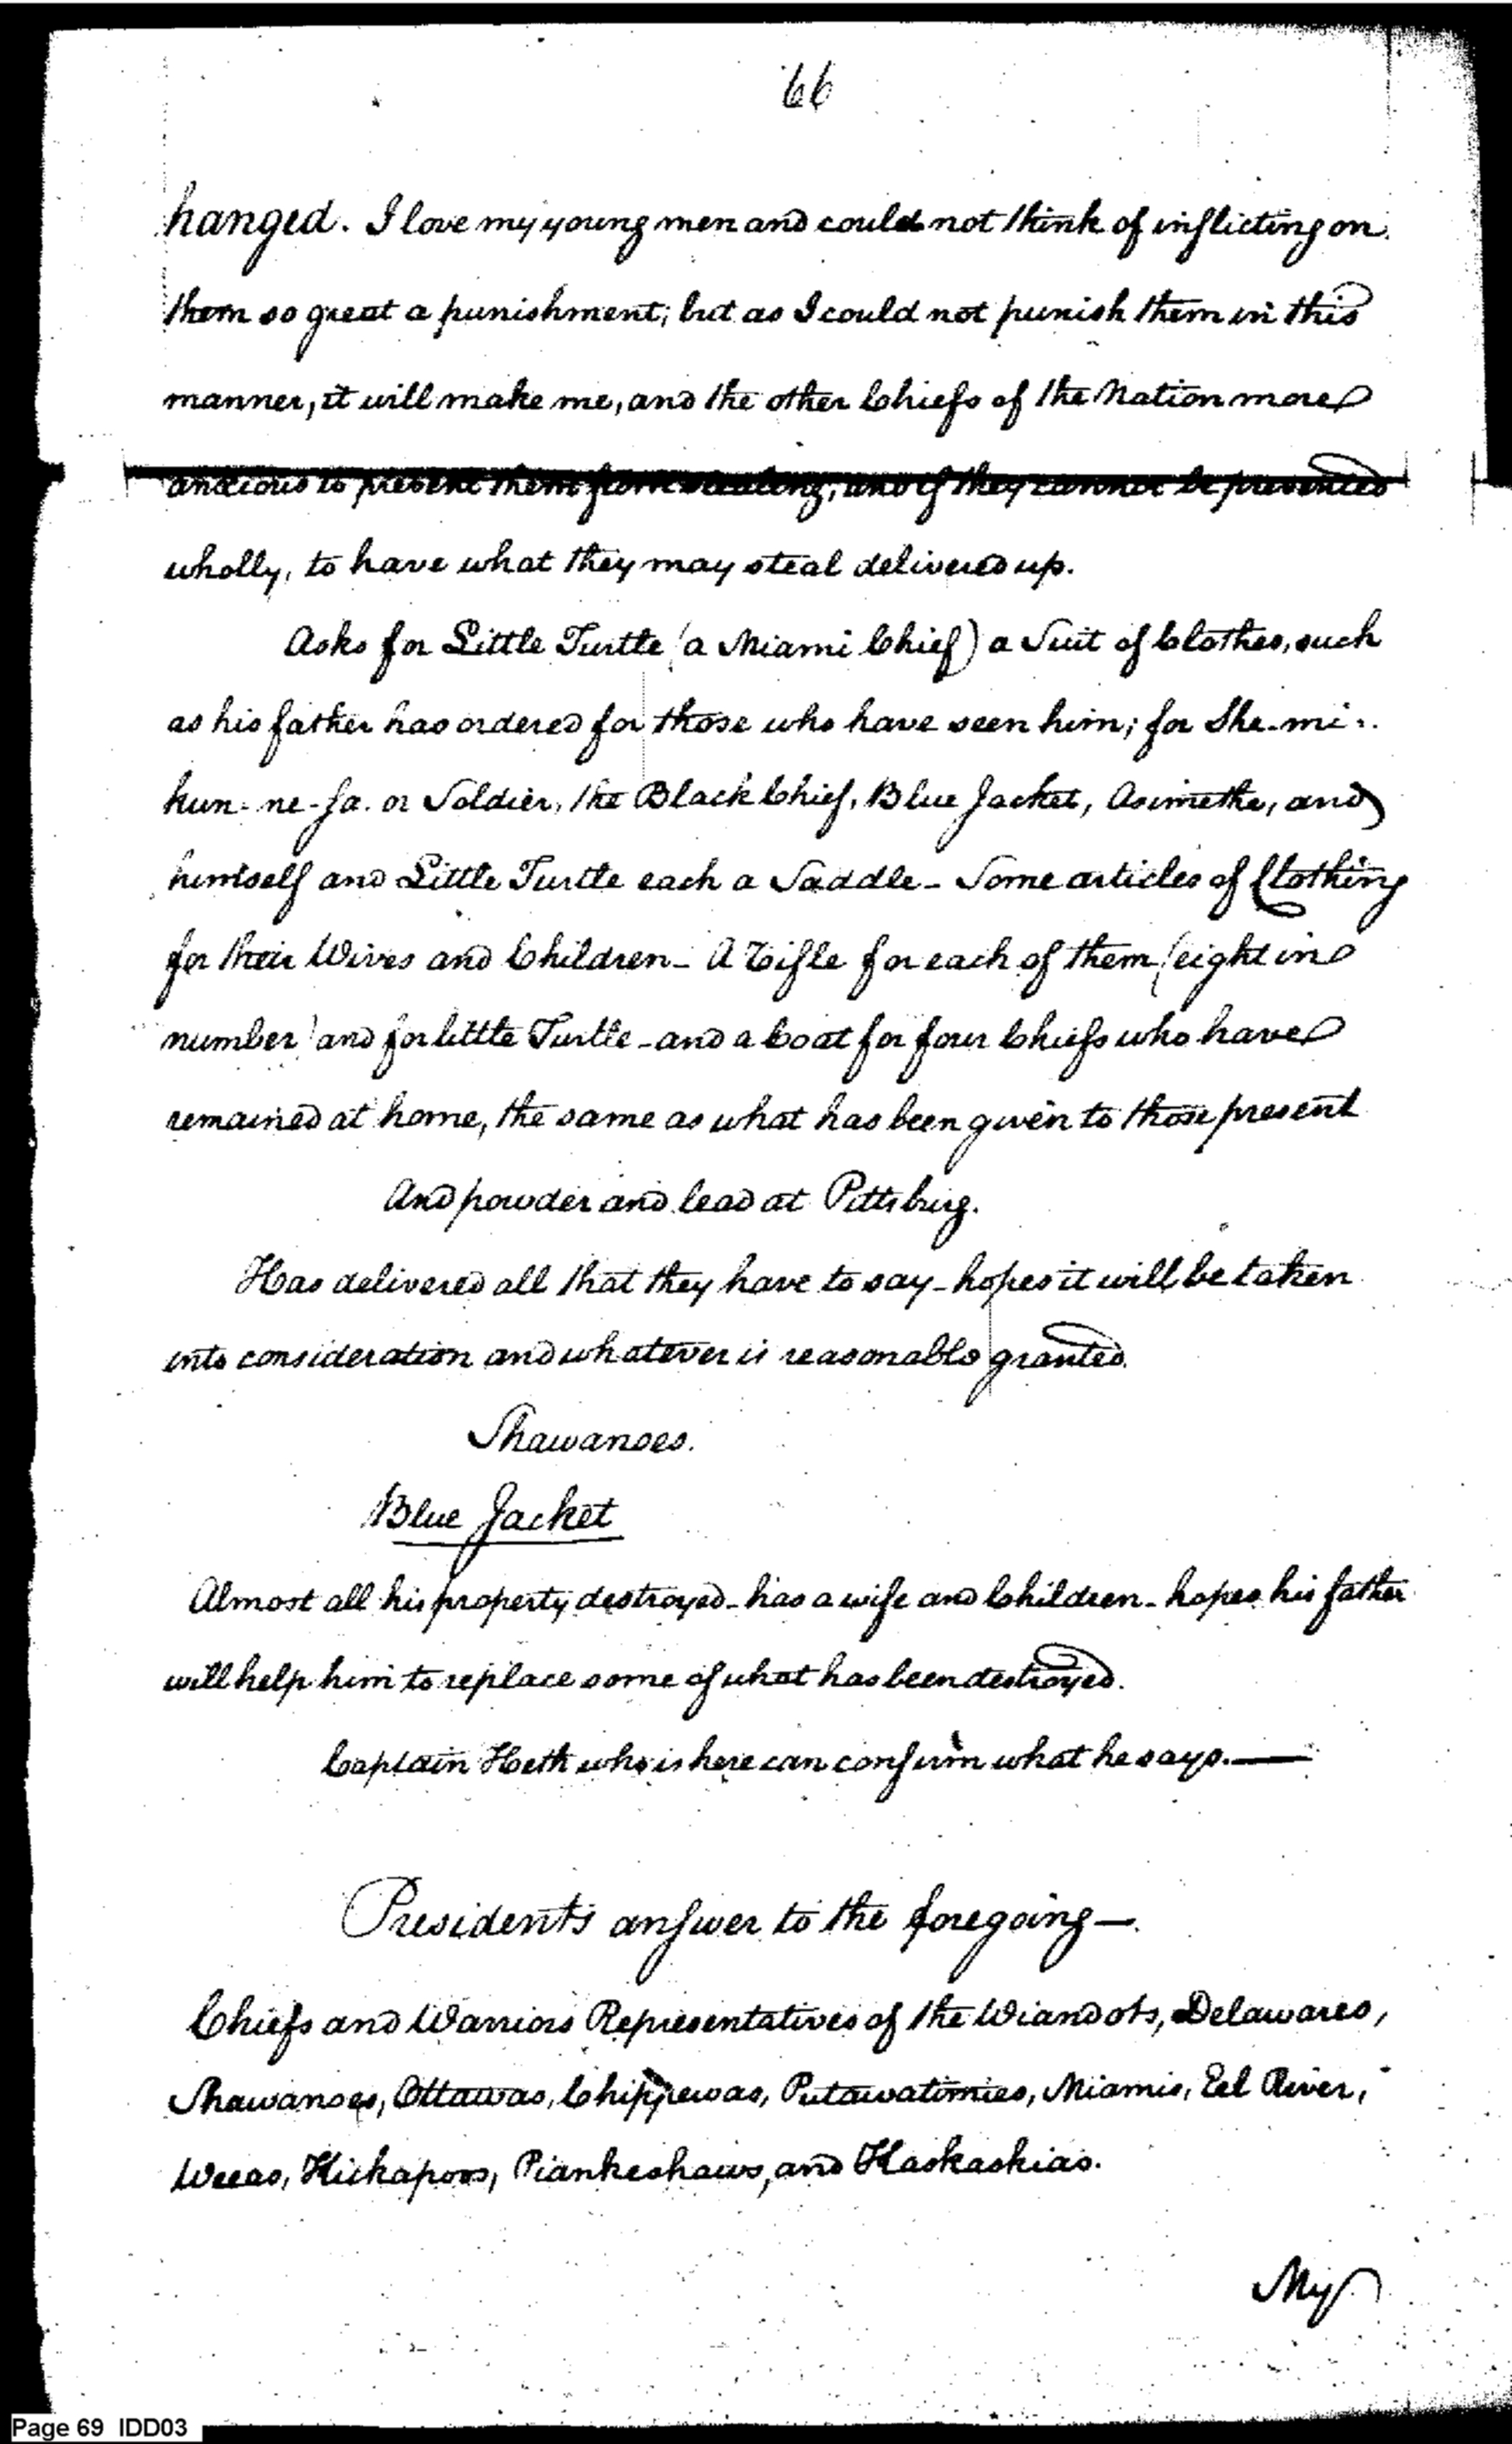 66
hanged. I love my young men and could not think of inflicting on
them so great a punishment; but as I could not punish them in this
manner, it will make me, and the other Chiefs of the Nation more
anxious to prevent them from stealing; and if they cannot be prevented
wholly, to have what they may steal delivered up.
Asks for Little Turtle (a Miami Chief) a Suit of Clothes, such
as his father has ordered for those who have seen him; for She-mi-
kun-ne-sa. or Soldier, the Black Chief, Blue Jacket, Asimethe, and
himself and Little Turtle each a Saddle - Some articles of Clothing
for their Wives and Children - A Rifle for each of them (eight in
number) and for little Turtle - and a Coat for four Chiefs who have
remained at home, the same as what has been given to those present
And powder and lead at Pittsburg.
Has delivered all that they have to say - hopes it will be taken
into consideration and whatever is reasonable granted.
Shawanoes.
Blue Jacket
Almost all his property destroyed - has a wife and Children - hopes his father
will help him to replace some of what has been destroyed.
Captain Heth who is here can confirm what he says.—
Presidents answer to the foregoing—.
Chiefs and Warriors Representatives of the Wiandots, Delawares,
Shawanoes, Ottawas, Chippewas, Putawatimies, Miamis, Eel River,
Weeas, Kickapoos, Piankeshaws, and Kaskaskias.
My
Page 69 IDD03